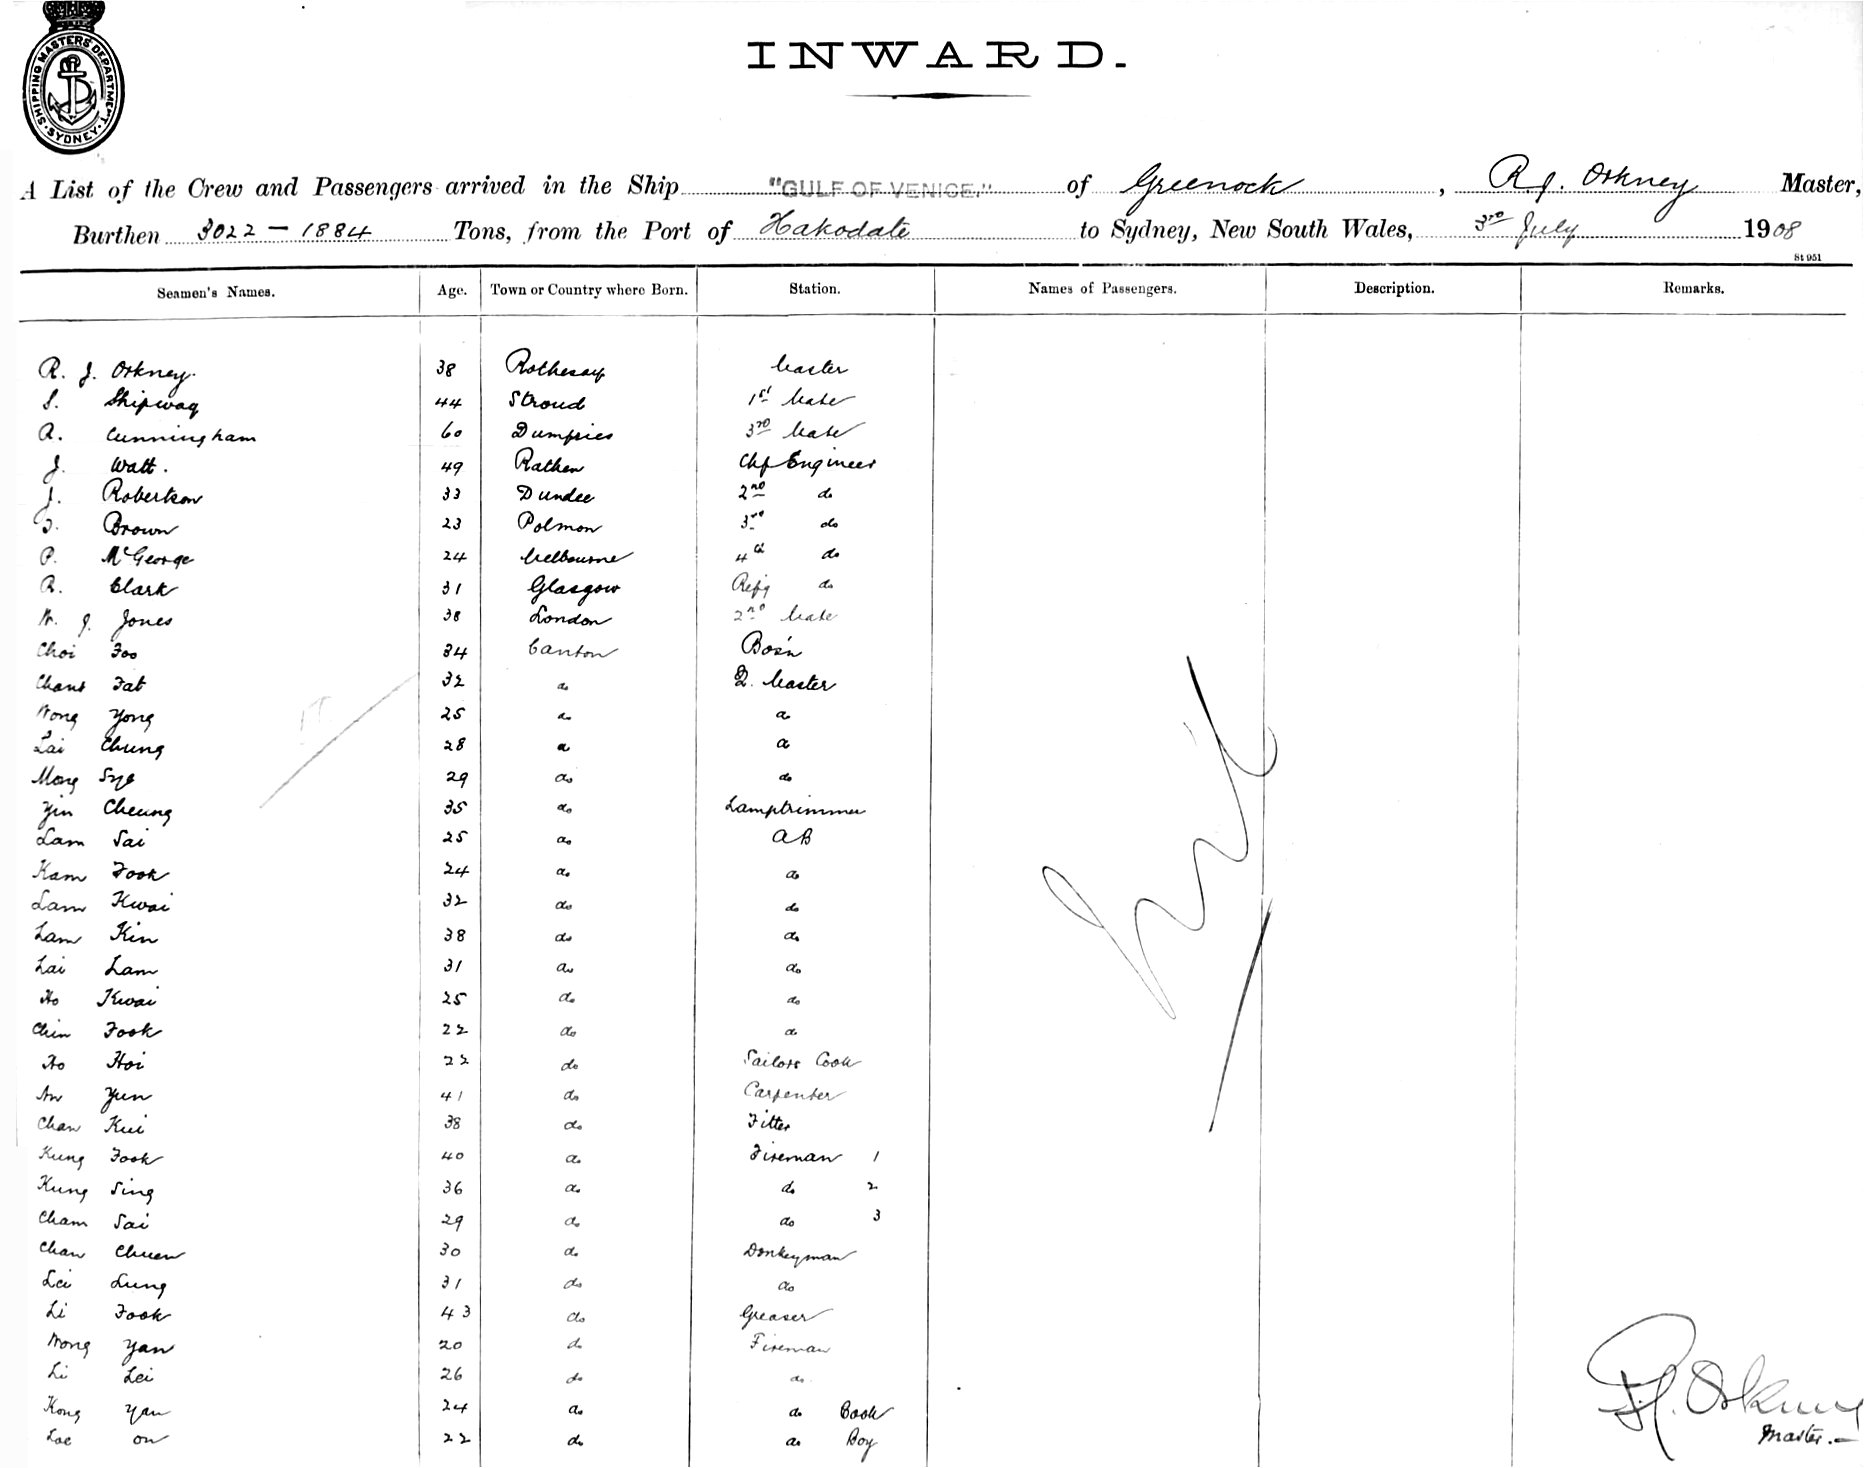 SHIPPING MASTERS DEPARTMENT
SYDNEY
INWARD.
A List of the Crew and Passengers arrived in the Ship "GULF OF VENICE." of Greenock, R. J. Orkney Master,
Burthen 3022 - 1884 Tons, from the Port of Hakodate to Sydney, New South Wales, 3rd July 1908
St 951
Seamen's Names. Age. Town or Country where Born. Station. Names of Passengers. Description. Remarks.
R. J. Orkney. 38 Rothesay Master
S. Shipway 44 Stroud 1st Mate
A. Cunningham 60 Dumfries 3rd Mate
J. Watt. 49 Rathen Chf Engineer
J. Robertson 33 Dundee 2nd do
Brown 23 Polmon 3rd do
P. McGeorge 24 Melbourne 4th do
R. Clark 31 Glasgow Refg do
W. J. Jones 38 London 2nd Mate
Choi Foo 34 Canton Bos'n
Chans Fat 32 do Q. Master
Wong Yong 25 do do
Lai Chung 28 do do
Mong Sye 29 do do
Yin Cheung 35 do Lamptrimmer
Lam Sai 25 do AB
Kam Fook 24 do do
Lam Kwai 32 do do
Lam Kin 38 do do
Lai Lam 31 do do
Ho Kwai 25 do do
Chin Fook 22 do do
Ho Hoi 22 do Sailors Cook
Yun 41 do Carpenter
Chan Kui 38 do Fitter
Kung Fook 40 do Fireman 1
Kung Sing 36 do do 2
Cham Sai 29 do do 3
Chan Chuen 30 do Donkeyman
Lei Lung 31 do do
Li Fook 43 do Greaser
Wong Yan 20 do Fireman
Li Lei 26 do do
Kong Yan 24 do do Cook
Loe on 22 do do Boy
Nil
R. J. Orkney
Master.